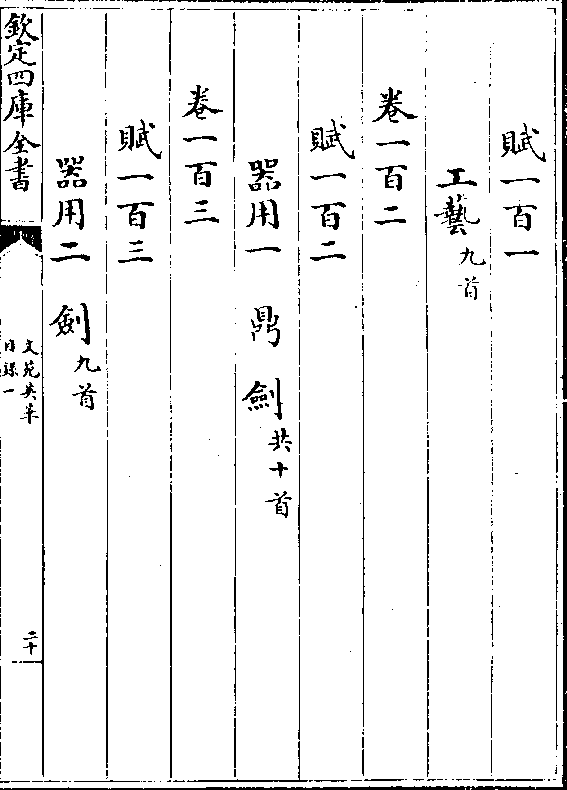 賦一百一
工藝九首
卷一百二
賦一百二
器用一　鼎　劍共十首
卷一百三
賦一百三
器用二　劍九首
欽定四庫全書
文苑英華
目錄一
二十